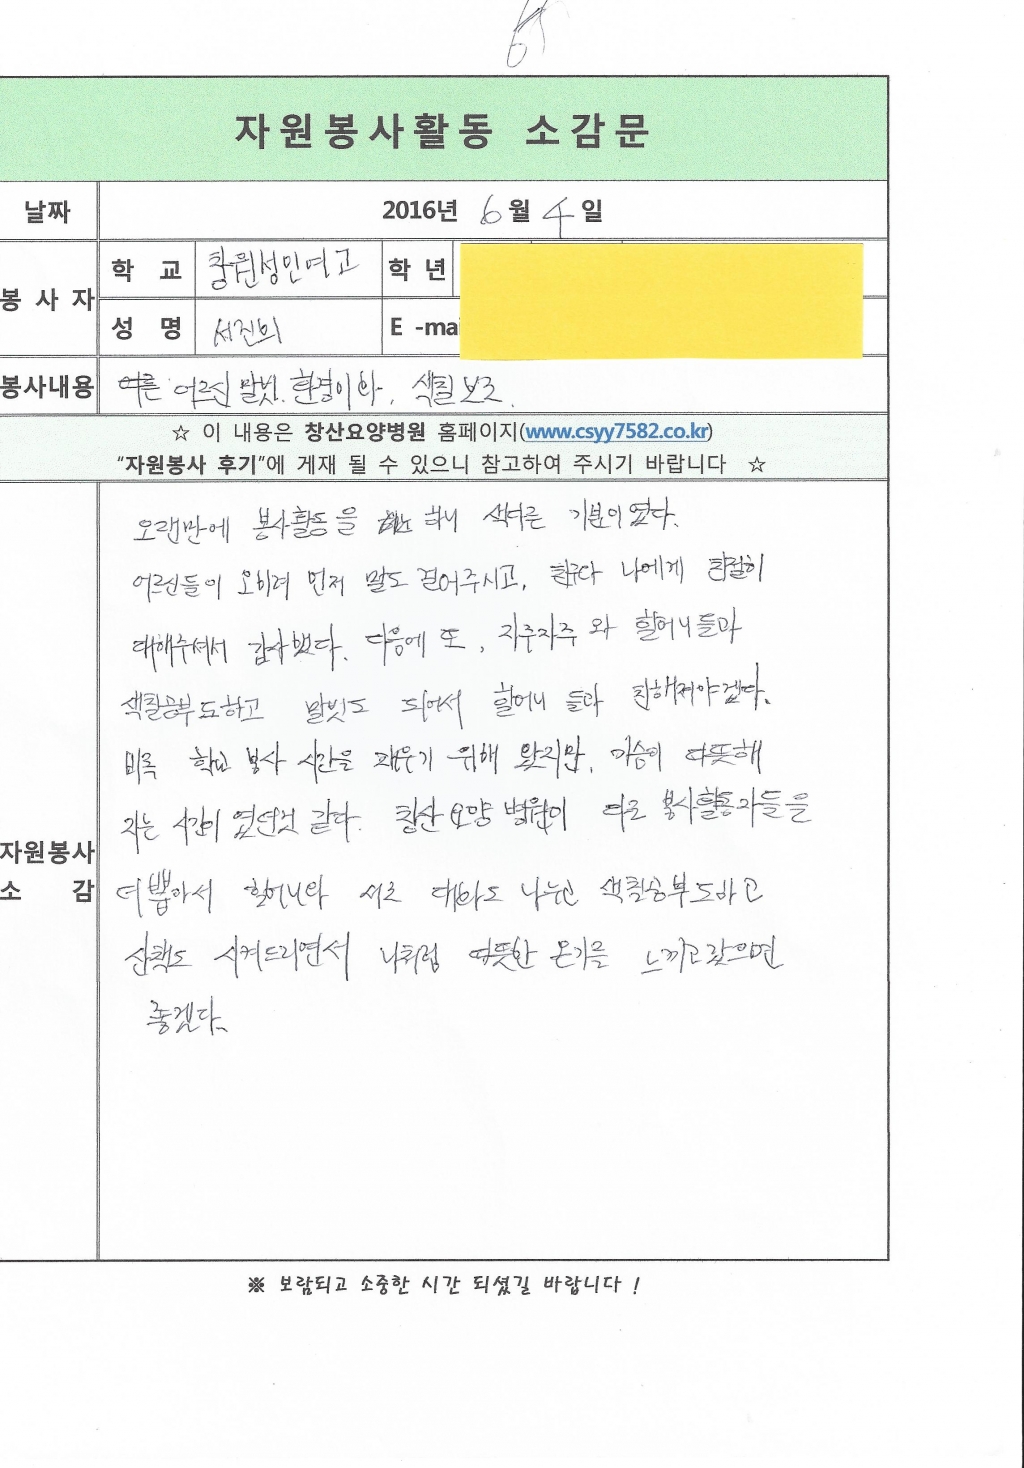 자원봉사활동 소감문
날짜 2016년 6월 4일
봉사자
학 교 창원성민여고 학 년
성 명 서진희 E -mai
봉사내용 어르신 말벗. 환경미화, 색칠 보조.
☆ 이 내용은 창산요양병원 홈페이지(www.csyy7582.co.kr)
“자원봉사 후기”에 게재 될 수 있으니 참고하여 주시기 바랍니다 ☆
자원봉사 소 감
오랜만에 봉사활동을 하니 색다른 기분이였다.
어르신들이 오히려 먼저 말도 걸어주시고, 나에게 친절히
대해주셔서 감사했다. 다음에 또, 자주자주 와 할머니들과
색칠공부도하고 말벗도 되어서 할머니 들과 친해져야겠다.
비록 학교 봉사 시간을 채우기 위해 왔지만, 가슴이 따뜻해
지는 시간이 였던것 같다. 창산 요양 병원이 봉사활동자들을
더 뽑아서 할머니와 서로 대화도 나누고 색칠공부도하고
산책도 시켜드리면서 나처럼 따뜻한 온기를 느끼고 갔으면
좋겠다.
※ 보람되고 소중한 시간 되셨길 바랍니다 !